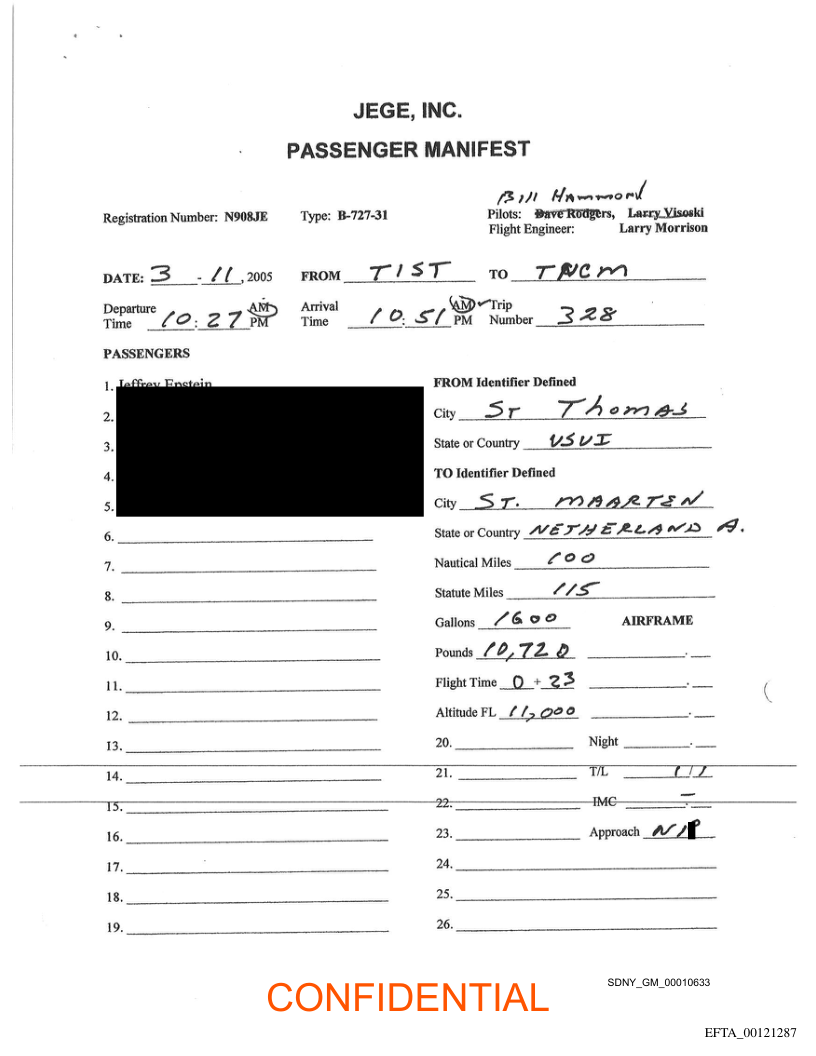 JEGE, INC.
PASSENGER MANIFEST
Bill Hammond
Registration Number: N908JE Type: B-727-31 Pilots: Dave Rodgers, Larry Visoski
Flight Engineer: Larry Morrison
DATE: 3 - 11, 2005 FROM TIST TO TNCM
Departure Time 10:27 AM PM Arrival Time 10:51 AM PM Trip Number 328
PASSENGERS
1. Jeffrey Epstein FROM Identifier Defined
2. City ST Thomas
3. State or Country USVI
4. TO Identifier Defined
5. City ST. MAARTEN
6. State or Country NETHERLAND A.
7. Nautical Miles 100
8. Statute Miles 115
9. Gallons 1600 AIRFRAME
10. Pounds 10,720
11. Flight Time 0 + 23
12. Altitude FL 11,000
13. 20. Night
14. 21. T/L 1/1
15. 22. IMC
16. 23. Approach
17. 24.
18. 25.
19. 26.
SDNY_GM_00010633
CONFIDENTIAL
EFTA_00121287